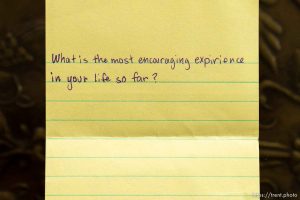 What is the most encouraging expirience
in your life so far?
https://trent.photo